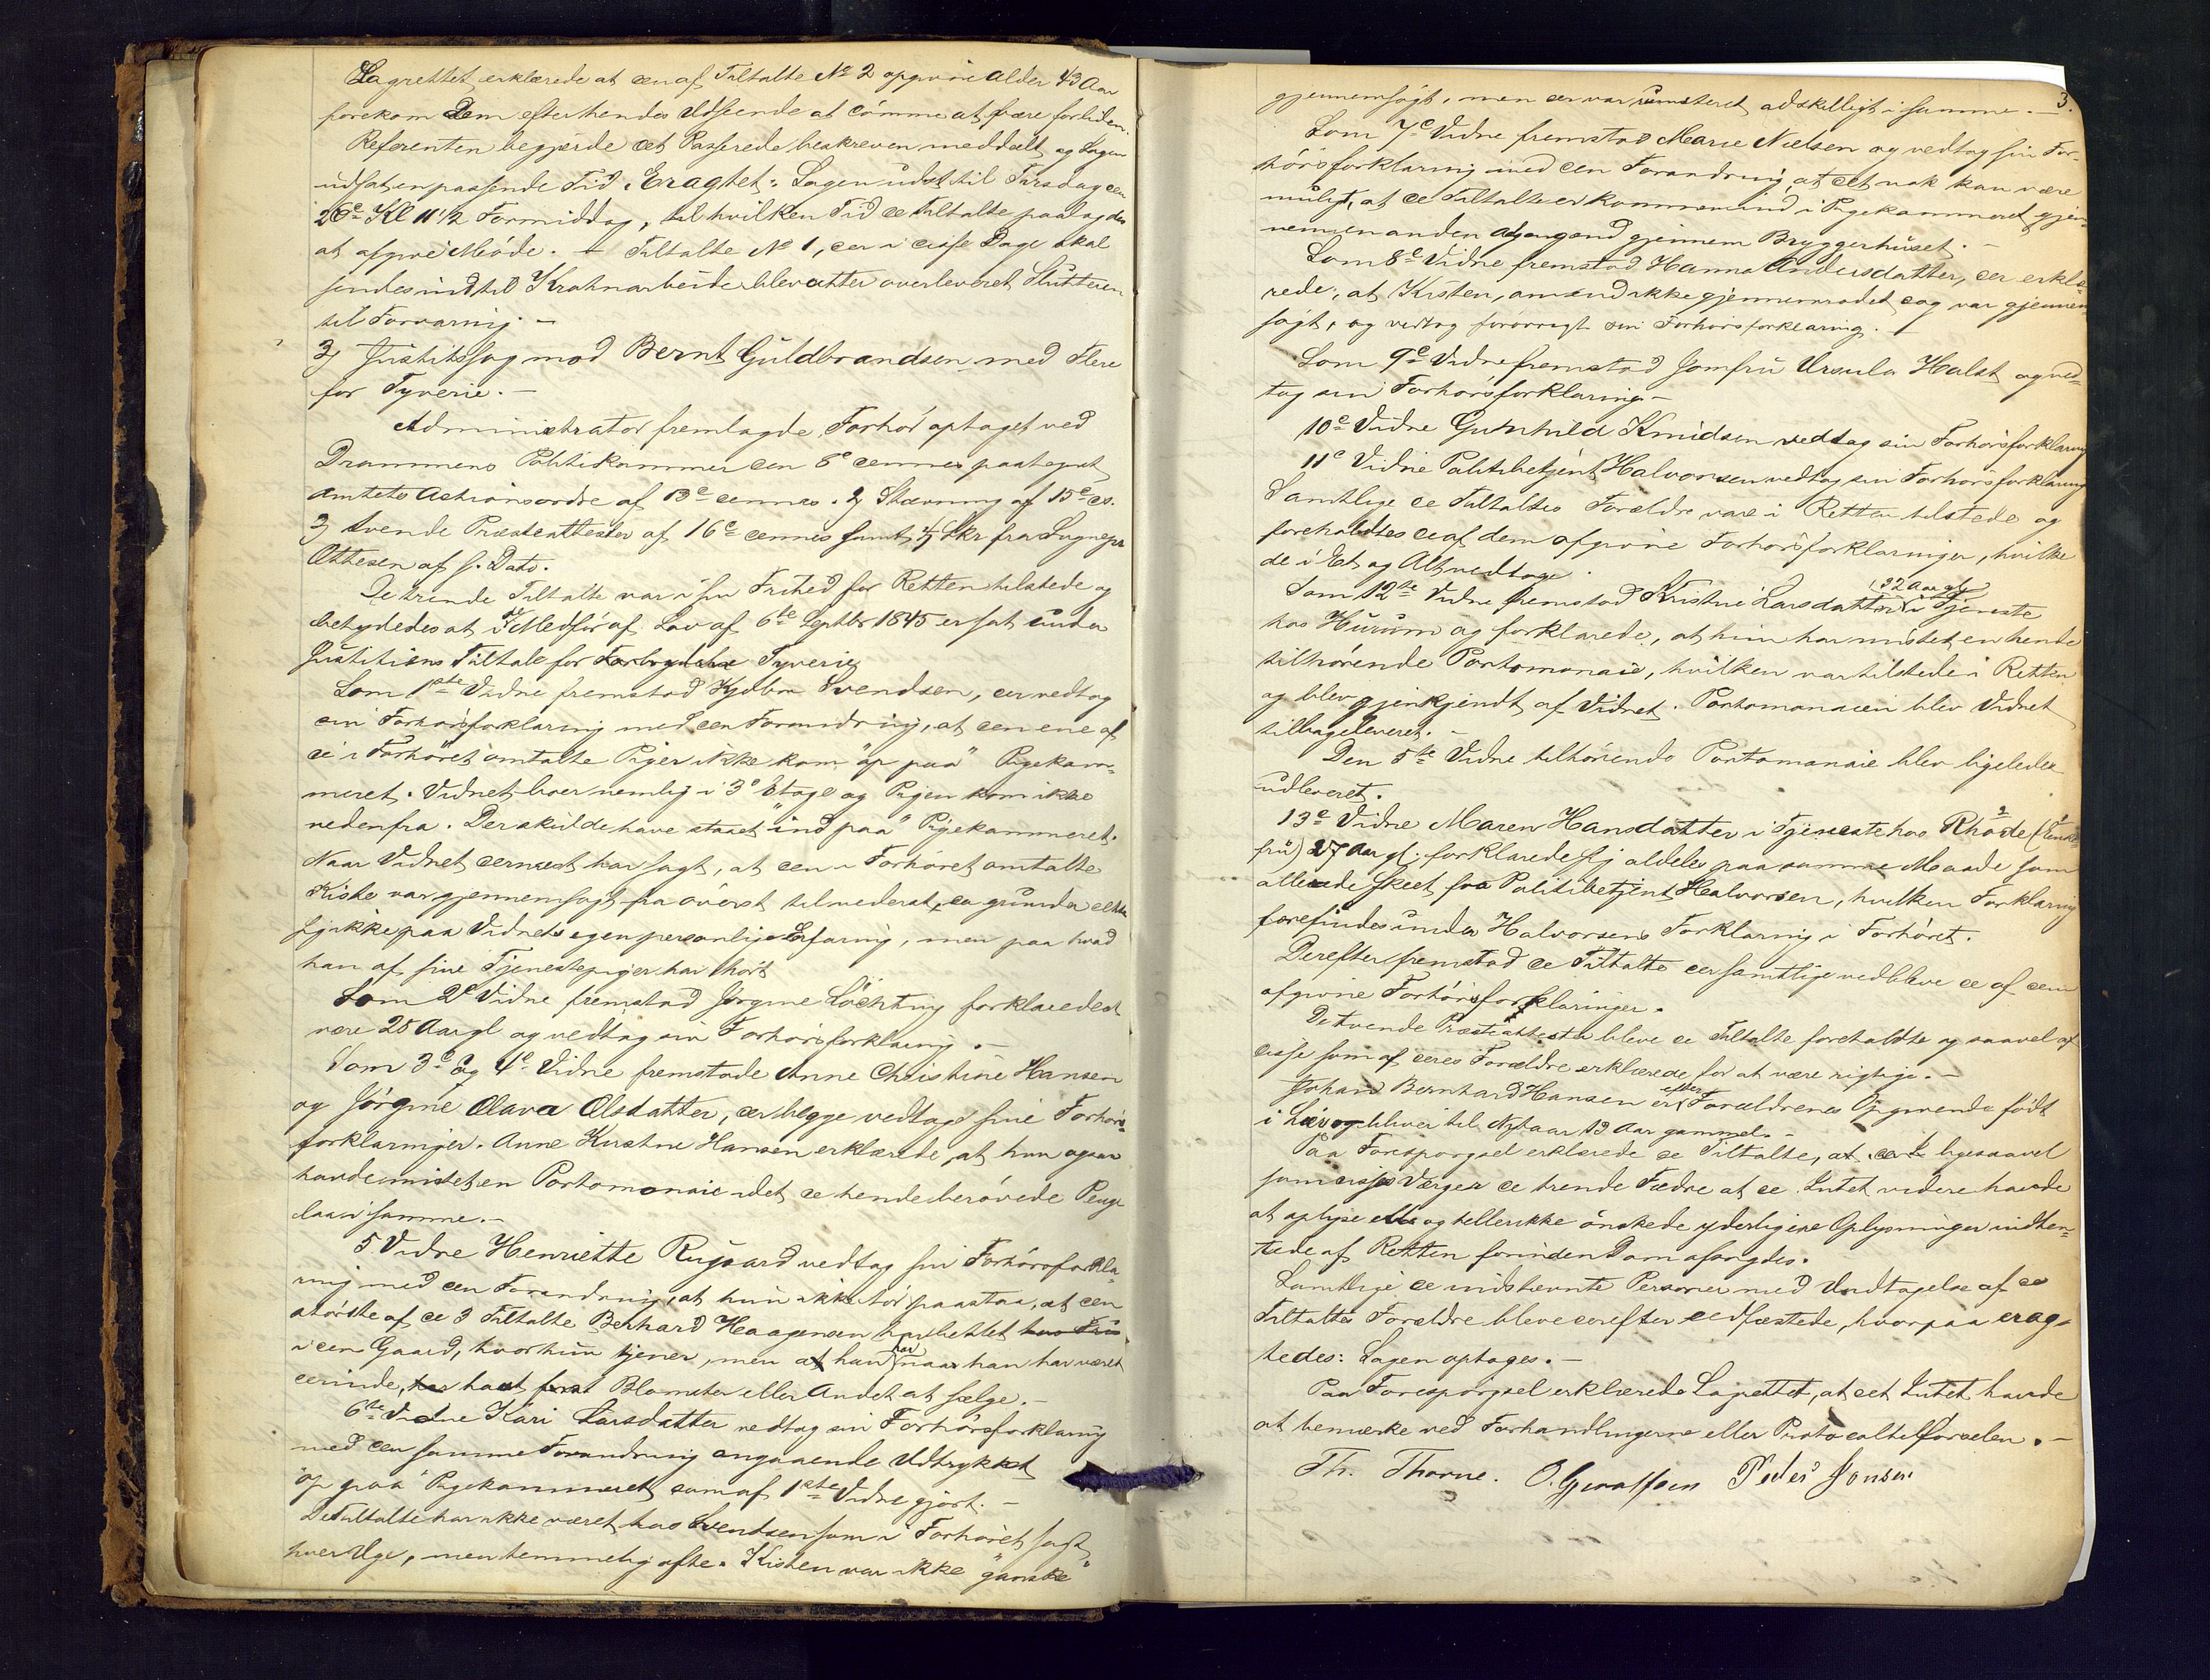 Lagrettet erklærede at den af Tiltalte No 2 opgivne Alder 43 Aar
forekom Dem efter hendes Udseende at komme at være forliden.
Referenten begjærede det Passerede beskreven meddelt og Sagen
udsat en passende Tid. Eragtet: Sagen udst til Tirsdag den
26e Kl 11 1/2 Formiddag, til hvilken Tid de Tiltalte paalagdes
at afgive Møde. – Tiltalte No 1, der i disse Dage skal
sendes ind til blev atter overleveret Slutteren
til Forvaring. –
3, Justitssag mod Bernt Guldbrandsen med Flere
for Tyverie. –
Administrator fremlagde, Forhør optaget ved
Drammens Politikammer den 8e dennes paategnet
Amtets Actionsordre af 13e dennes. 2, Stævning af 15e ds.
3, tvende Præsteattester af 16e dennes samt 4, Skr fra Sognepr
Ottesen af s. Dato.
De trende Tiltalte var i sin Frihed for Retten tilstede og
betydedes at de i Medfør af Lov af 6te Septbr 1845 er sat under
Justitiens Tiltale for Forbrydelse Tyverie
Som 1ste Vidne fremstod Kjøbm Svendsen, der vedtog
sin Forhørsforklaring med den Forandring, at den ene af
de i Forhøret omtalte Piger ikke kom "op paa" Pigekam-
meret. Vidnet boer nemlig i 3e Etage og Pigen kom ikke
nedenfra. Der skulde have staaet "ind paa" Pigekammeret.
Naar Vidnet dernæst har sagt, at den i Forhøret omtalte
Kiste var gjennemsøgt fra øverst til nederst, da grunder dette
sig ikke paa Vidnets egen personlige Erfaring, men paa hvad
han af sine Tjenestepiger har hørt
Som 2d Vidne fremstod Jørgine Löchting forklarede at
være 25 Aar gl og vedtog sin Forhørsforklaring. –
Som 3e og 4e Vidne fremstode Anne Christine Hansen
og Jørgine Olava Olsdatter, der begge vedtage sine Forhørs-
forklaringer. Anne Kristine Hansen erklærede, at hun ogsaa
havde mistet en Portomonaie idet de hende berøvede Penge
laa i samme. –
5 Vidne Henriette Rugaard vedtog sin Forhørsforkla-
ring med den Forandring, at hun ikke tør paastaa, at den
største af de 3 Tiltalte Berhard Haagensen har bettlet hos Fru
i den Gaard, hvor hun tjener, men at han har naar han har været
derinde, har havt Blomster eller Andet at sælge. –
6te Vidne Kari Larsdatter vedtog sin Forhørsforklaring
med den samme Forandring angaaende Udtrykket
"op paa" Pigekammeret som af 1ste Vidne gjort. –
De Tiltalte har ikke været hos Svendsen som i Forhøret sagt
hver Uge, men temmelig ofte. Kisten var ikke "ganske"
3.
gjennemsøgt, men der var rumsteret adskilligt i samme. –
Som 7e Vidne fremstod Marie Nielsen og vedtog sin For-
hørsforklaring med den Forandring, at det nok kan være
muligt, at de Tiltalte er kommen ind i Pigekammeret gjen-
nem en anden Adgang end gjennem Bryggerhuset. –
Som 8e Vidne fremstod Hanna Andersdatter, der erklæ-
rede, at Kisten, omend ikke gjennemrodet dog var gjennem
søgt, og vedtog forøvrigt sin Forhørsforklaring. –
Som 9e Vidne fremstod Jomfru Ursula Holst og ved-
tog sin Forhørsforklaring –
10e Vidne Gunhild Knudsen vedtog sin Forhørsforklaring
11e Vidne Politibetjent Halvorsen vedtog sin Forhørsforklaring
Samtlige de Tiltaltes Forældre vare i Retten tilstede og
foreholdtes de af dem afgivne Forhørsforklaringer, hvilke
de i Et og Alt vedtoge.
Som 12te Vidne fremstod Kristine Larsdatter (22 Aar gl) i Tjeneste
hos Hurum og forklarede, at hun har mistet en hende
tilhørende Portomonaie, hvilken var tilstede i Retten
og blev gjenkjendt af Vidnet. Portomonaien blev Vidnet
tilbageleveret. –
Den 5te Vidne tilhørende Portomonaie blev ligeledes
udleveret.
13e Vidne Maren Hansdatter i Tjeneste hos Rhode (Enke-
fru) 27 Aar gl. forklarede sig aldeles paa samme Maade som
allerede skeet fra Politibetjent Halvorsen, hvilken Forklaring
forefindes under Halvorsens Forklaring i Forhøret.
Derefter fremstod de Tiltalte der samtlige vedbleve de af dem
afgivne Forhørsforklaringer.
De tvende Præsteattester bleve de Tiltalte foreholdte og saavel af
disse som af deres Forældre erklærede for at være rigtige. –
Johan Bernhard Hansen er efter Forældrenes Opgivende født
i bliver til Nytaar 13 Aar gammel. –
Paa Forespørgsel erklærede de Tiltalte, at ligesaavel
som disses Værger de trende Fædre at de Intet videre havde
at oplyse og heller ikke ønskede yderligere Oplysninger indhen-
tede af Retten forinden Dom afsagdes.
Samtlige de indstevnte Personer med Undtagelse af de
Tiltaltes Forældre bleve derefter edfæstede, hvorpaa erag-
tedes: Sagen optages. –
Paa Forespørgsel erklærede Lagrettet, at det Intet havde
at bemærke ved Forhandlingerne eller Protocoltilførselen. –
Th. Thorne. Peder Jonsen